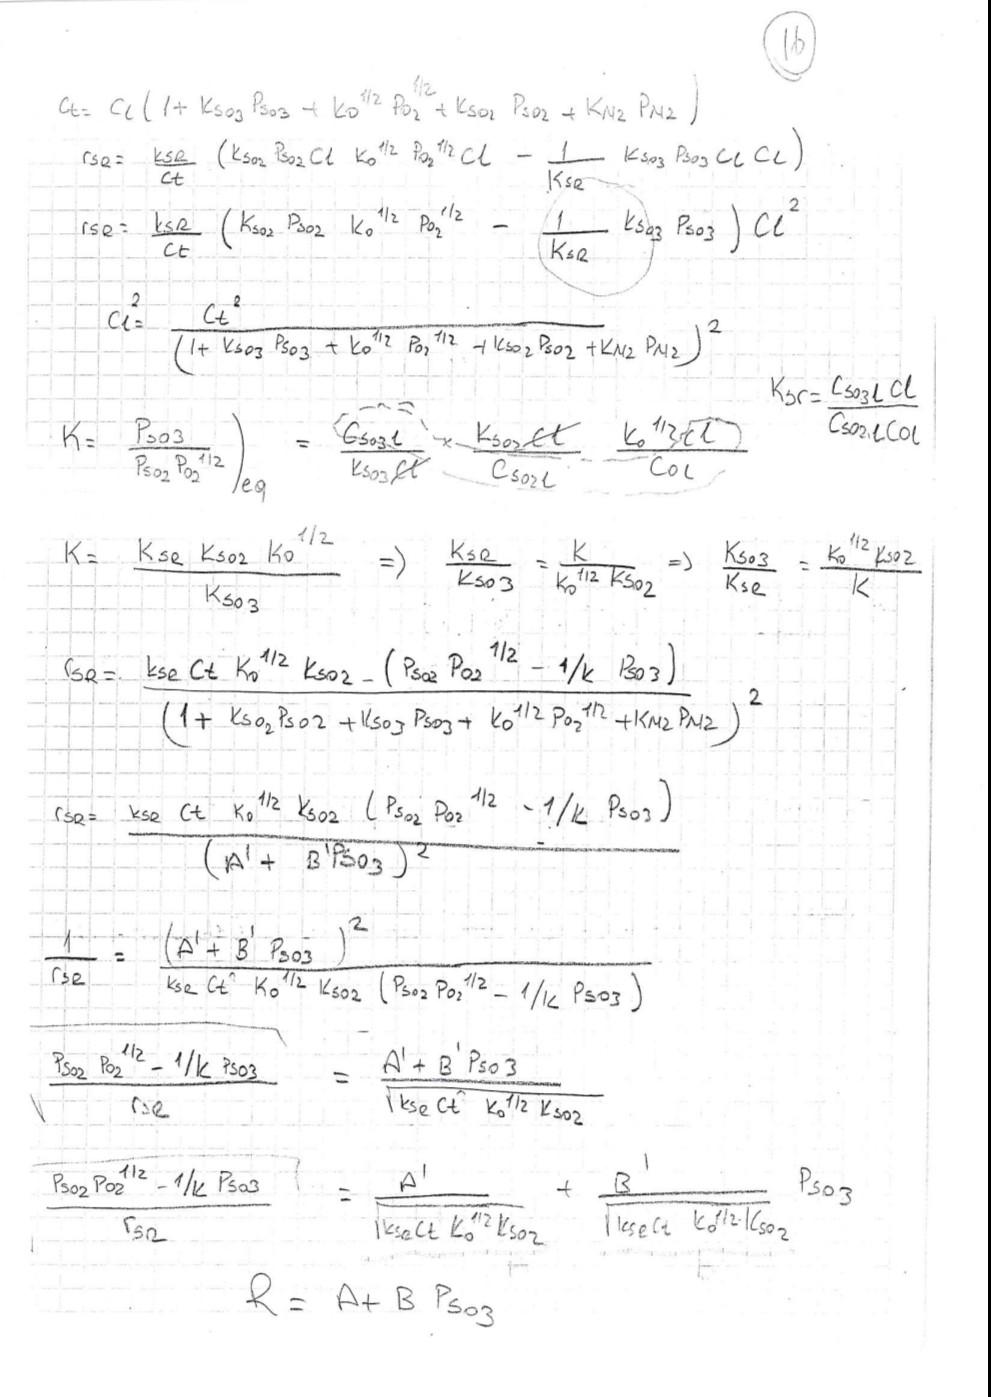 1b
Ct= Cl ( 1+ KSO3 PSO3 + KO^1/2 PO2^1/2 + KSO2 PSO2 + KN2 PN2 )
rSR= kSR/Ct (KSO2 PSO2 Cl KO^1/2 PO2^1/2 Cl - 1/KSR KSO3 PSO3 Cl Cl)
rSR= kSR/Ct (KSO2 PSO2 KO^1/2 PO2^1/2 - 1/KSR KSO3 PSO3 ) Cl^2
Cl^2= Ct^2/(1+ KSO3 PSO3 + KO^1/2 PO2^1/2 + KSO2 PSO2 + KN2 PN2 )^2
KSr= CSO3l Cl/CSO2l COl
K= PSO3/PSO2 PO2^1/2 )eq = CSO3l/KSO3 Cl × KSO2 Cl/CSO2l KO^1/2 Cl/COl
K= KSR KSO2 KO^1/2/KSO3 => KSR/KSO3 = K/KO^1/2 KSO2 => KSO3/KSR = KO^1/2 KSO2/K
rSR= kSR Ct KO^1/2 KSO2 - (PSO2 PO2^1/2 - 1/K PSO3)/(1+ KSO2 PSO2 + KSO3 PSO3 + KO^1/2 PO2^1/2 + KN2 PN2 )^2
rSR= kSR Ct KO^1/2 KSO2 (PSO2 PO2^1/2 - 1/K PSO3)/(A' + B' PSO3)^2
1/rSR = (A' + B' PSO3)^2/kSR Ct KO^1/2 KSO2 (PSO2 PO2^1/2 - 1/K PSO3)
√(PSO2 PO2^1/2 - 1/K PSO3/rSR) = A' + B' PSO3/√(kSR Ct KO^1/2 KSO2)
√(PSO2 PO2^1/2 - 1/K PSO3/rSR) = A'/√(kSR Ct KO^1/2 KSO2) + B'/√(kSR Ct KO^1/2 · KSO2) PSO3
R = A + B PSO3